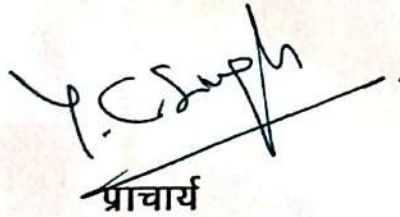 Y. C. Singh
प्राचार्य